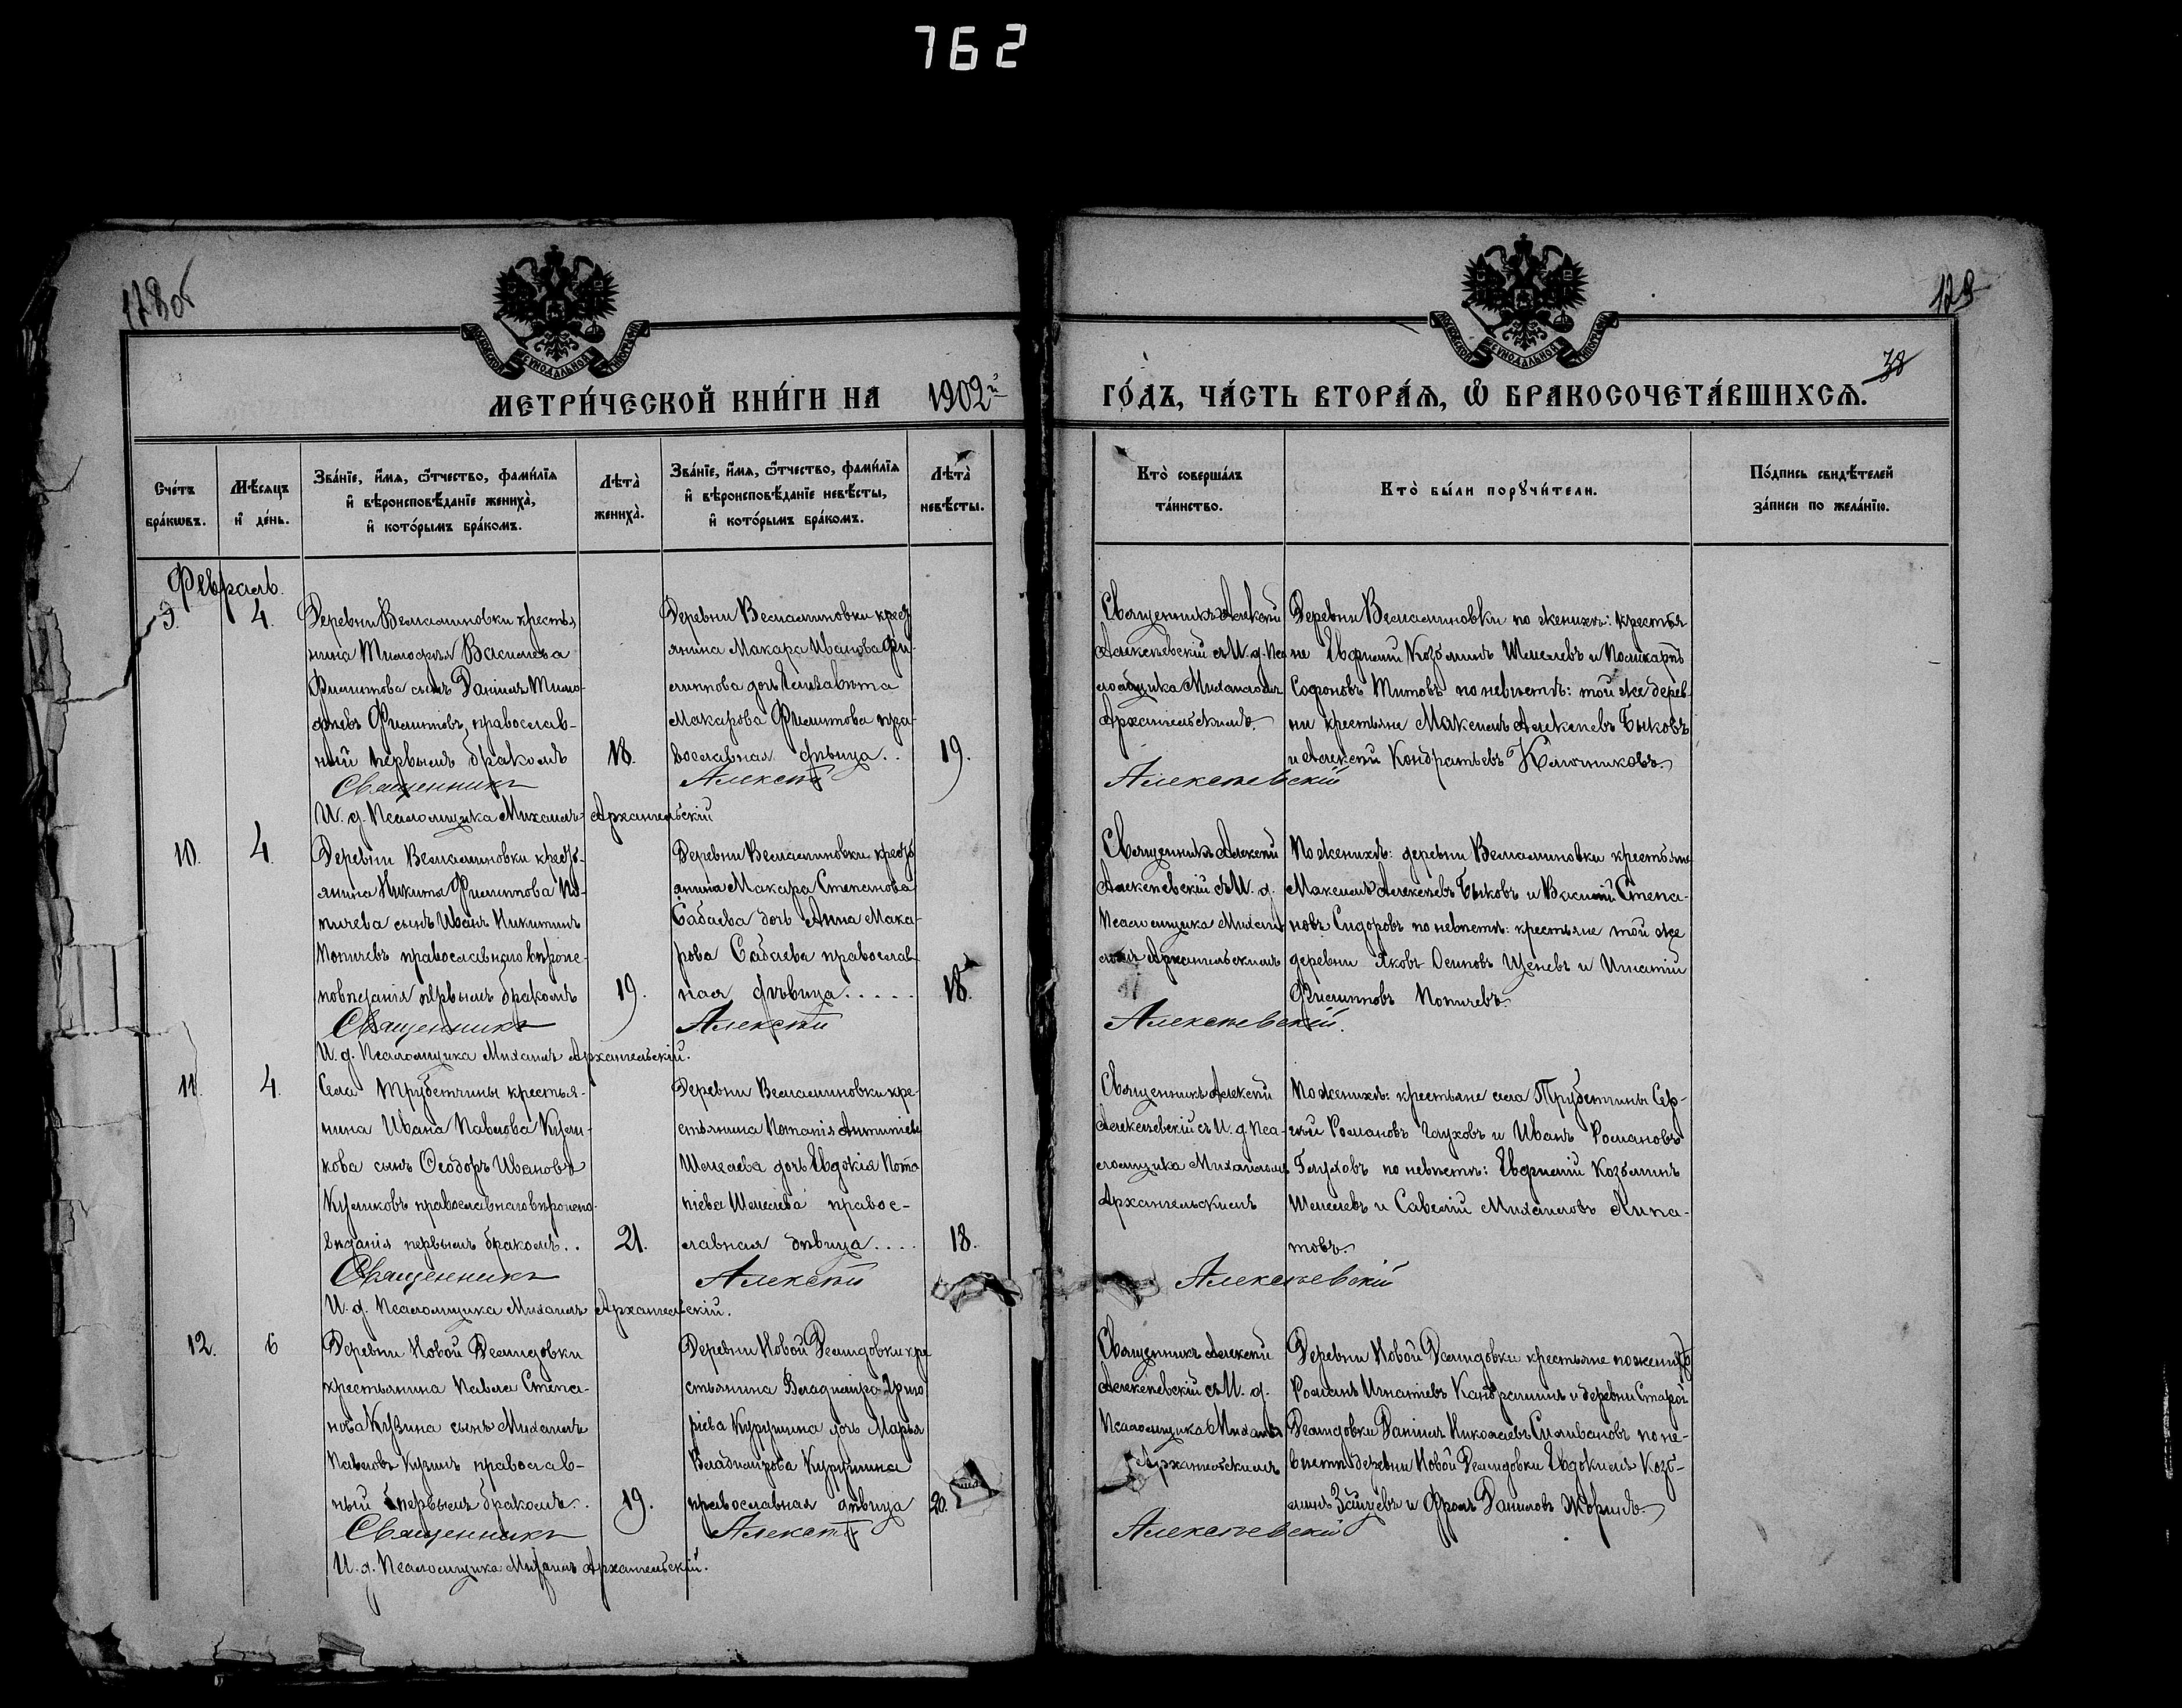 762
129
38
МЕТРИ́ЧЕСКОЙ КНИ́ГИ НА 1902й ГО́ДЪ, ЧА́СТЬ ВТОРА́Я, Ѡ БРАКОСОЧЕТА́ВШИХСЯ.
Сче́тъ бра́кѡвъ.
Мѣ́сяцъ и де́нь.
Зва́нїе, и́мя, ѻ҆́тчество, фами́лїя
и҆ вѣроисповѣ́данїе жениха̀,
и҆ кото́рымъ бра́комъ.
Лѣта̀ жениха̀.
Зва́нїе, и́мя, ѻ҆́тчество, фами́лїя
и҆ вѣроисповѣ́данїе невѣ́сты,
и҆ кото́рымъ бра́комъ.
Лѣта̀ невѣ́сты.
Кто̀ соверша́лъ та́инство.
Кто̀ бы́ли порꙋчи́тели.
По́дпись свидѣ́телей за́писи по жела́нїю.
Февраль.
9.
4.
Деревни Вельаминовки крестья
нина Тимофея Васильева
Филиппова сынъ Данiилъ Тимо-
феевъ Филипповъ, православ-
ный первымъ бракомъ
18.
Деревни Вельаминовки крест
янина Макара Иванова Фи-
липпова дочь Елизавета
Макарова Филиппова пра-
вославная дѣвица..
19.
Священникъ Алексiй
Алексѣевскiй съ И. д. Пса
ломщика Михаиломъ
Архангельскимъ.
Деревни Вельаминовки по женихѣ: крестья
не Евфимiй Козьминъ Шмелевъ и Поликарпъ
Софоновъ Титовъ по невѣстѣ: той же дерев-
ни крестьяне Максимъ Алексѣевъ Быковъ
и Алексѣй Кондратьевъ Ключниковъ.
Священникъ Алексѣй Алексѣевскiй
И. д. Псаломщика Михаилъ Архангельскiй
10.
4.
Деревни Вельаминовки кресть-
янина Никиты Филиппова По-
пичева сынъ Иванъ Никитинъ
Попичевъ православнаго вѣроис-
повѣданiя первымъ бракомъ
19.
Деревни Вельаминовки кресть
янина Макара Степанова
Сабаева дочь Анна Мака-
рова Сабаева православ
ная дѣвица.....
18.
Священникъ Алексѣй
Алексѣевскiй съ И. д.
Псаломщика Михаи
ломъ Архангельскимъ
По женихѣ: деревни Вельаминовки крестьяне
Максимъ Алексѣевъ Быковъ и Василiй Степа-
новъ Сидоровъ по невѣстѣ: крестьяне той же
деревни Яковъ Осиповъ Щеневъ и Игнатiй
Филипповъ Попичевъ.
Священникъ Алексѣй Алексѣевскiй.
И. д. Псаломщика Михаилъ Архангельскiй.
11.
4.
Села Трубетчины крестья-
нина Ивана Павлова Кули-
кова сынъ Ѳеодоръ Ивановъ
Куликовъ православнаго вѣроиспо-
вѣданiя первымъ бракомъ..
21.
Деревни Вельаминовки кре-
стьянина Потапiя
Шмелева дочь Евдокiя Пота
пiева Шмелева правос-
лавная дѣвица....
18.
Священникъ Алексѣй
Алексѣевскiй съ И. д Пса-
ломщика Михаиломъ
Архангельскимъ
По женихѣ: крестьяне села Трубетчины Сер-
гѣй Романовъ Глуховъ и Иванъ Романовъ
Глуховъ по невѣстѣ: Евфимiй Козьминъ
Шмелевъ и Савелiй Михаиловъ Липа-
товъ.
Священникъ Алексѣй Алексѣевскiй
И. д. Псаломщика Михаилъ Архангельскiй.
12.
6
Деревни Новой Демидовки
крестьянина Павла Степа-
нова Кузина сынъ Михаилъ
Павловъ Кузинъ православ-
ный первымъ бракомъ.
19.
Деревни Новой Демидовки кре
стьянина Владимiра Григо
рiева Курушина дочь Марья
Владимiрова Курушина
православная дѣвица
20.
Священникъ Алексѣй
Алексѣевскiй съ И. д.
Псаломщика Михаиломъ
Архангельскимъ
Деревни Новой Демидовки крестьяне по женихѣ
Романъ Игнатiевъ и деревни Старой
Демидовки Данiилъ Николаевъ Силивановъ по не-
вѣстѣ деревни Новой Демидовки Евдокимъ Козь-
минъ Зайцевъ и Фролъ Даниловъ
Священникъ Алексѣй Алексѣевскiй
И. д. Псаломщика Михаилъ Архангельскiй.